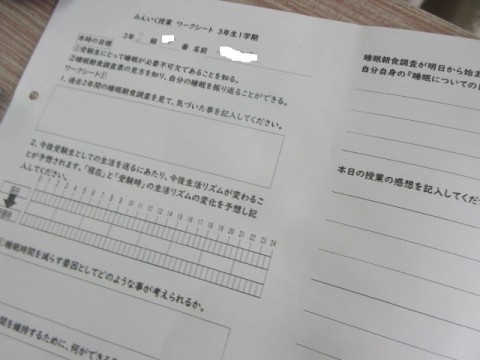 みんいく授業 ワークシート 3年生1学期
3年 組 番 名前
本時の目標
①受験生にとって睡眠が必要不可欠であることを知る。
②睡眠朝食調査票の見方を知り、自分の睡眠を振り返ることができる。
ワークシート①
1、過去2年間の睡眠朝食調査を見て、気づいた事を記入してください。
2、今後受験生としての生活を送るにあたり、今後生活リズムが変わるこ
とが予想されます。「現在」と「受験時」の生活リズムの変化を予想し記
入してください。
睡眠時間を減らす要因としてどのような事が考えられるか。
間を維持するために、何ができる
睡眠朝食調査が明日から始ま
自分自身の『睡眠についての
本日の授業の感想を記入してくだ